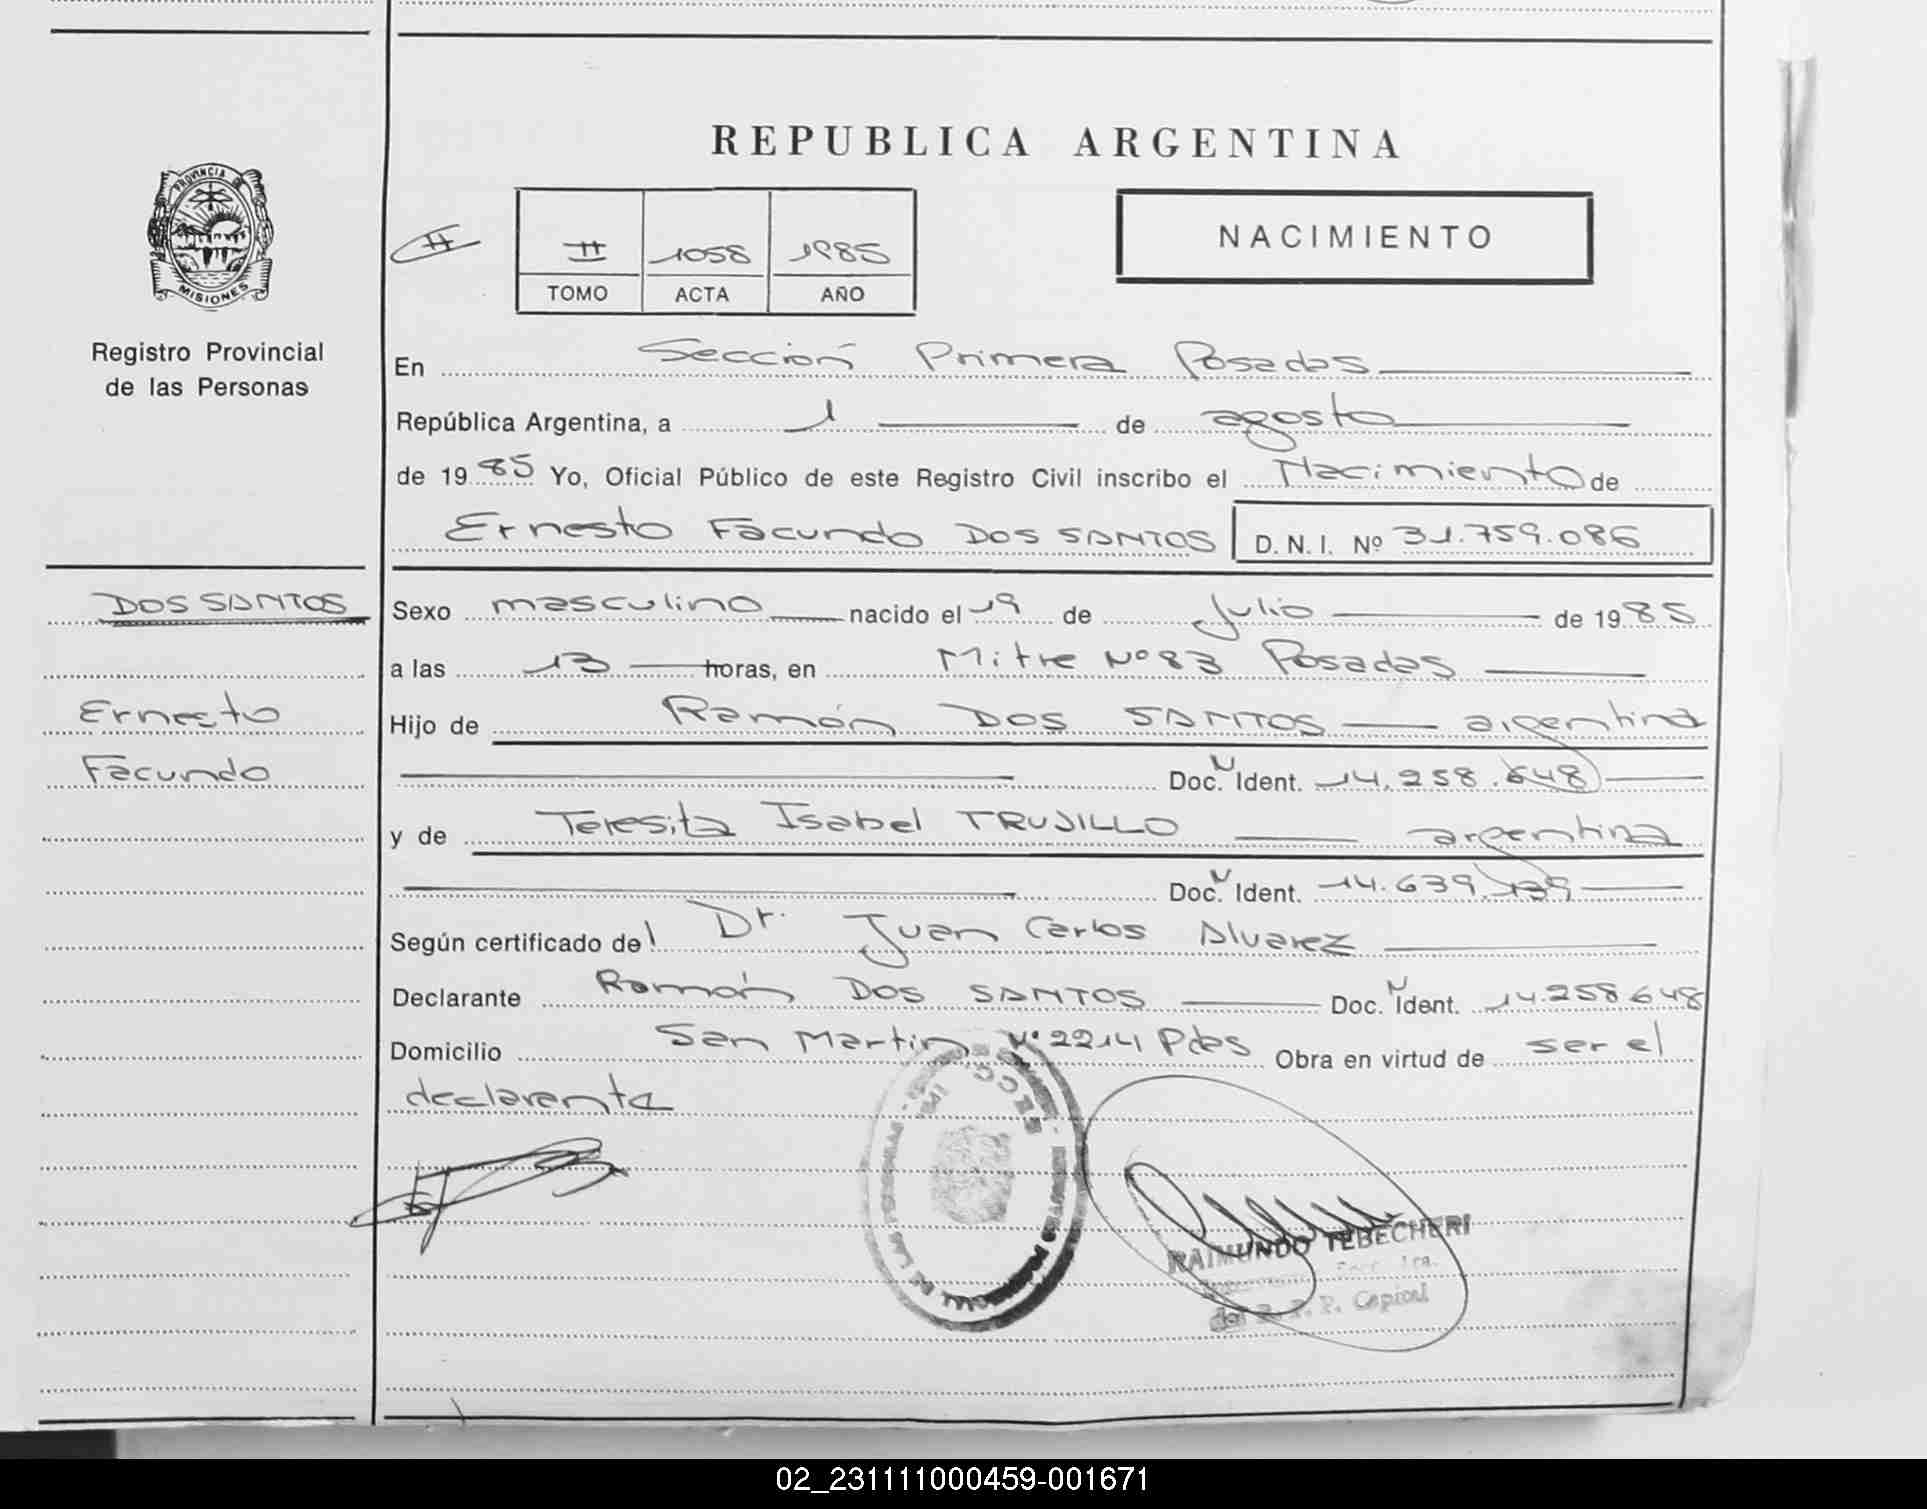 REPUBLICA ARGENTINA
PROVINCIA DE
MISIONES
Registro Provincial
de las Personas
II
II 1058 1985
TOMO ACTA AÑO
NACIMIENTO
En Sección Primera Posadas
República Argentina, a 1 de agosto
de 1985 Yo, Oficial Público de este Registro Civil inscribo el Nacimiento de
Ernesto Facundo DOS SANTOS D.N.I. Nº 31.759.086
DOS SANTOS
Ernesto
Facundo
Sexo masculino nacido el 19 de Julio de 1985
a las 13 horas, en Mitre Nº 83 Posadas
Hijo de Ramón DOS SANTOS argentina
Doc. N Ident. 14.258.648
y de Teresita Isabel TRUJILLO argentina
Doc. N Ident. 14.639.139
Según certificado del Dr. Juan Carlos Alvarez
Declarante Ramón DOS SANTOS Doc. N Ident. 14.258.648
Domicilio San Martin Nº 2214 Pdas Obra en virtud de ser el
declarante
SECC.
DE LAS PERSONAS
RAIMUNDO TEBECHERI
del R. P. P. Capital
02_231111000459-001671